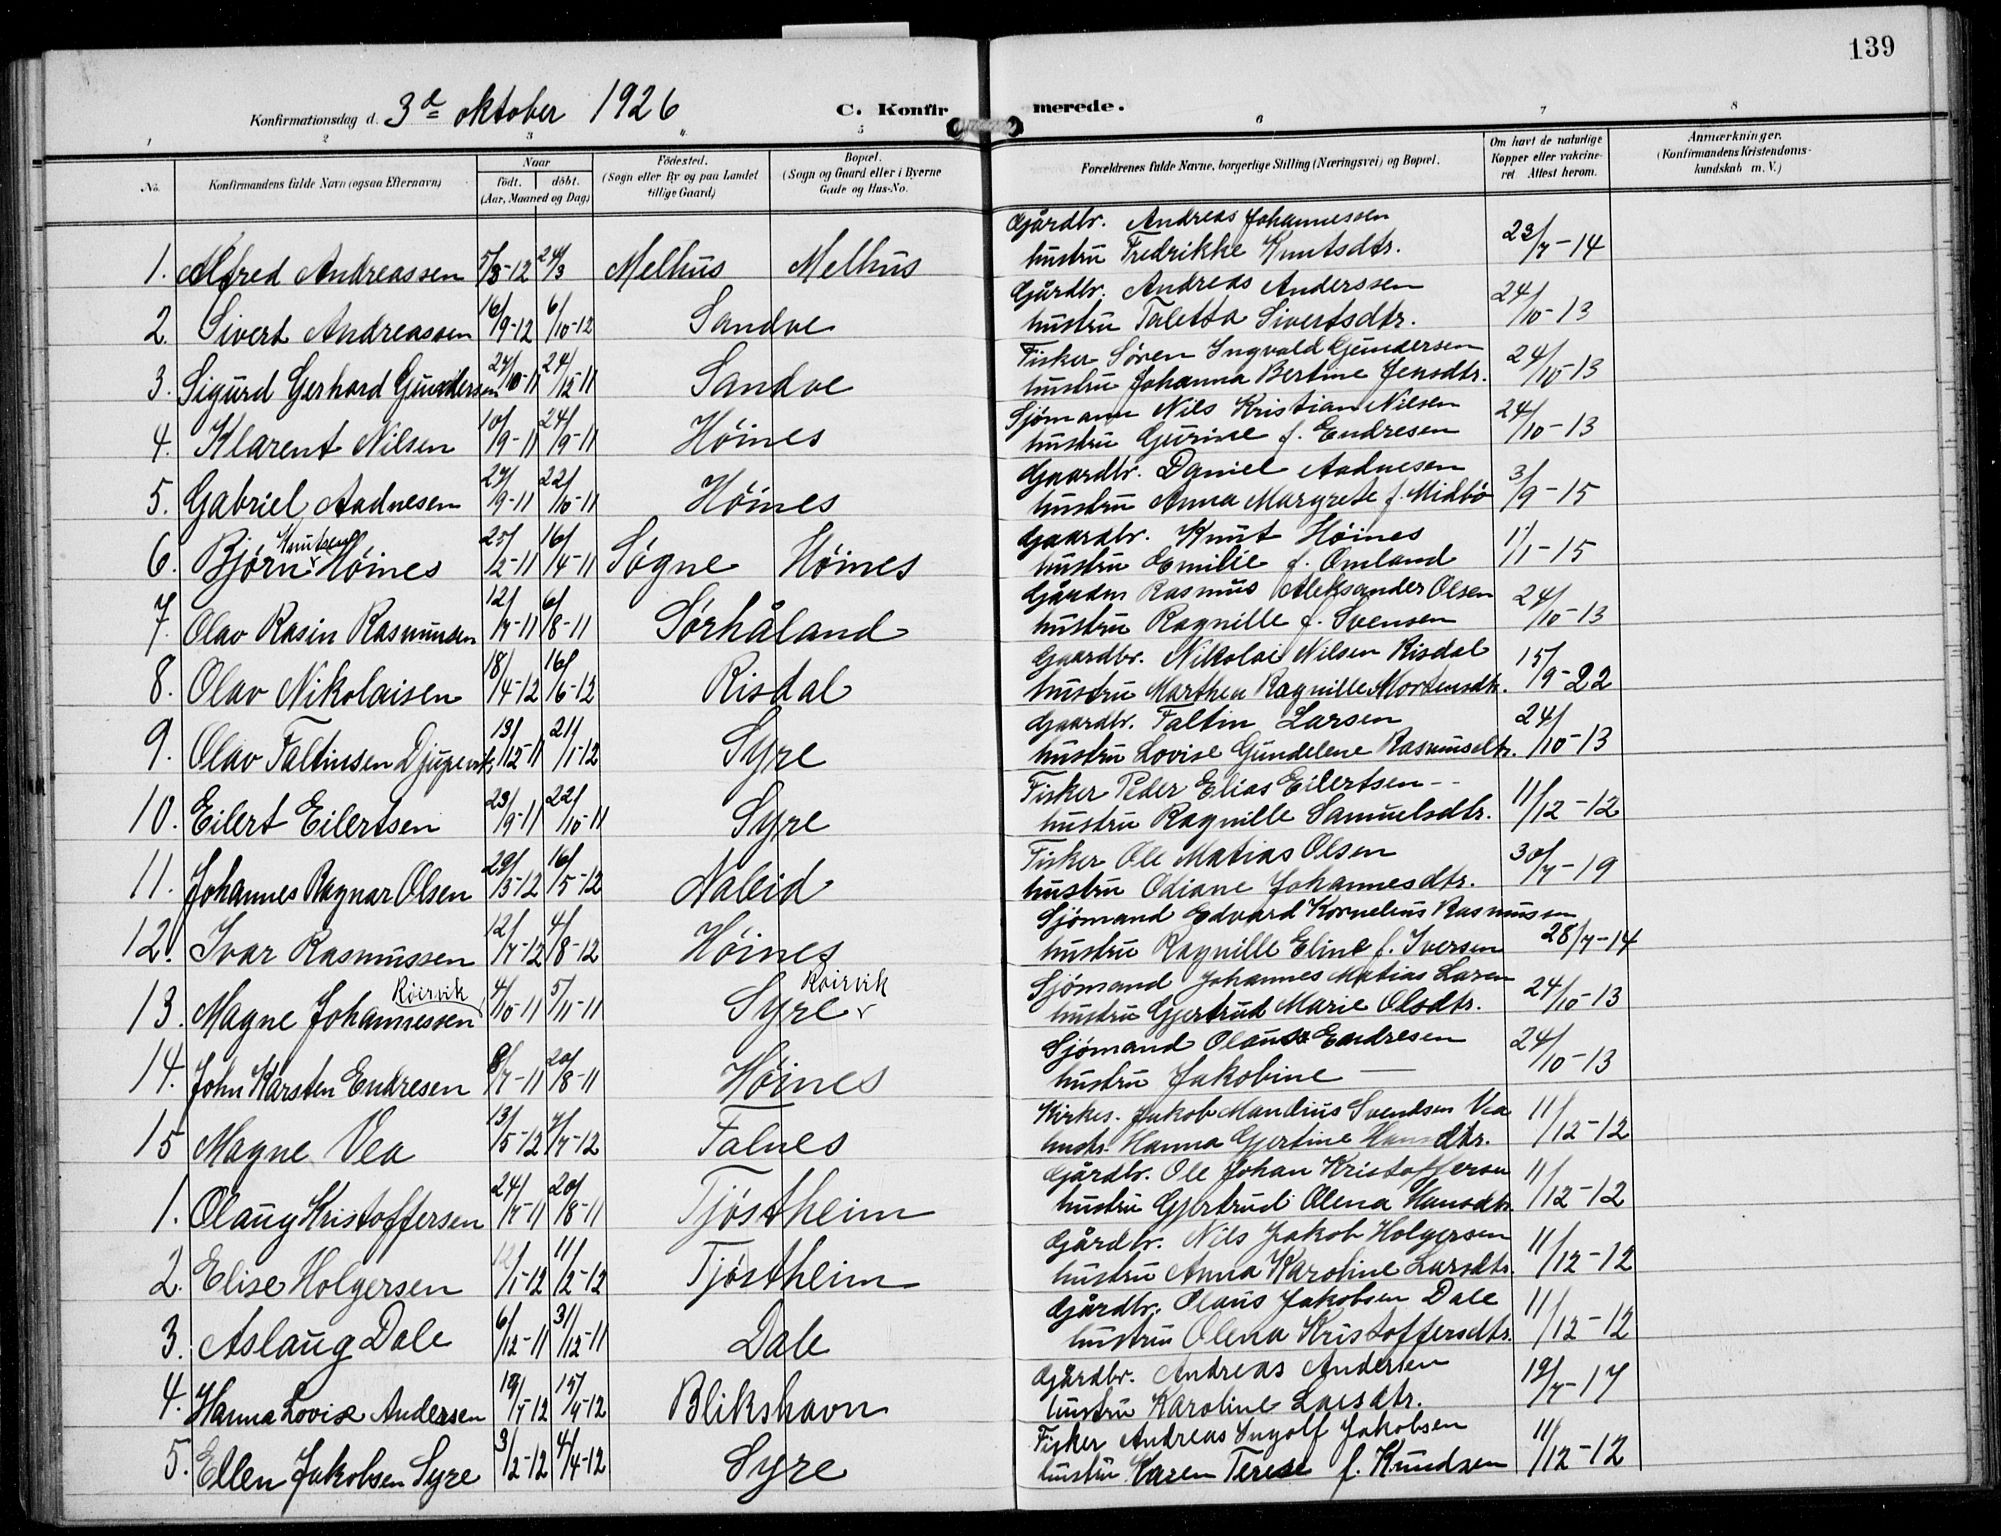 139
Konfirmationsdag d. 3d oktober 1926
C. Konfirmerede.
1 2 3 4 5 6 7 8
No.
Konfirmandens fulde Navn (ogsaa Efternavn)
Naar
født. døbt.
(Aar, Maaned og Dag)
Fødested.
(Sogn eller By og paa Landet
tillige Gaard)
Bopæl.
(Sogn og Gaard eller i Byerne
Gade og Hus-No.
Forældrenes fulde Navne, borgerlige Stilling (Næringsvei) og Bopæl.
Om havt de naturlige
Kopper eller vakcine-
ret Attest herom.
Anmærkninger.
(Konfirmandens Kristendoms-
kundskab m. V.)
Gårdbr. Andreas Johannessen
1. Alfred Andreassen 5/3-12 24/3 Melhus Melhus hustru Fredrikke Knutsdtr. 23/7-14
Gårdbr. Andreas Anderssen
2. Sivert Andreassen 16/9-12 6/10-12 Sandve hustru Taletta Sivertsdtr. 24/10-13
Fisker Søren Ingvald Gundersen
3. Sigurd Gerhard Gundersen 27/10-11 24/12-11 Sandve hustru Johanna Bertine Jensdtr. 24/10-13
Sjømann Nils Kristian Nilsen
4. Klarent Nilsen 10/9-11 24/9-11 Høines hustru Gurine f. Endresen 24/10-13
Gaardbr. Daniel Aadnesen
5. Gabriel Aadnesen 27/9-11 22/10-11 Høines hustru Anna Margrete f. Midbø 3/9-15
Gaardbr. Knut Høines
6. Bjørn Knutsen Høines 25/2-11 16/4-11 Søgne Høines hustru Emilie f. Omland 11/1-15
Gårdbr Rasmus Aleksander Olsen
7. Olav Rasin Rasmussen 12/7-11 6/8-11 Sørhåland hustru Ragnille f. Svensen 24/10-13
Gaardbr. Nikolai Nilsen Risdal
8. Olav Nikolaisen 18/4-12 16/6-12 Risdal hustru Marthea Ragnille Mortensdtr. 15/9-22
Gaardbr. Faltin Larsen
9. Olav Faltinsen Djupevik 13/12-11 21/1-12 Syre hustru Lovise Gundelene Rasmusdtr. 24/10-13
Fisker Peder Elias Eilertsen
10. Eilert Eilertsen 23/9-11 22/10-11 Syre hustru Ragnille Samuelsdtr. 11/12-12
Fisker Ole Matias Olsen
11. Johannes Ragnar Olsen 29/3-12 16/5-12 Naleid hustru Odiane Johannesdtr. 30/7-19
Sjømand Edvard Kornelius Rasmussen
12. Ivar Rasmussen 12/7-12 4/8-12 Høines hustru Ragnille Eline f. Iversen 28/7-14
Sjømand Johannes Matias Larsen
13. Magne Johannessen Røirvik 4/10-11 5/11-11 Syre Røirvik hustru Gjertrud Marie Olsdtr. 24/10-13
Sjømand Olaus Endresen
14. John Karsten Endresen 8/7-11 20/8-11 Høines hustru Jakobine — 24/10-13
Kirkes. Jakob Mandius Svendsen Vea
15 Magne Vea 13/5-12 7/7-12 Falnes hustr. Hanna Gjertine Hansdtr. 11/12-12
Gårdbr. Ole Johan Kristoffersen
1. Olaug Kristoffersen 24/7-11 20/8-11 Tjøstheim hustru Gjertrud Olena Hansdtr. 11/12-12
Gårdbr. Nils Jakob Holgersen
2. Elise Holgersen 12/1-12 11/2-12 Tjøstheim hustru Anna Karoline Larsdtr. 11/12-12
Gårdbr. Olaus Jakobsen Dale
3. Aslaug Dale 6/12-11 31/12-11 Dale hustru Olena Kristoffersdtr. 11/12-12
Gårdbr. Andreas Andersen
4. Hanna Lovise Andersen 19/7-12 15/9-12 Blikshavn hustru Karoline Larsdtr. 19/7-17
Fisker Andreas Ingolf Jakobsen
5. Ellen Jakobsen Syre 3/2-12 4/4-12 Syre hustru Karen Terese f. Knudsen 11/12-12